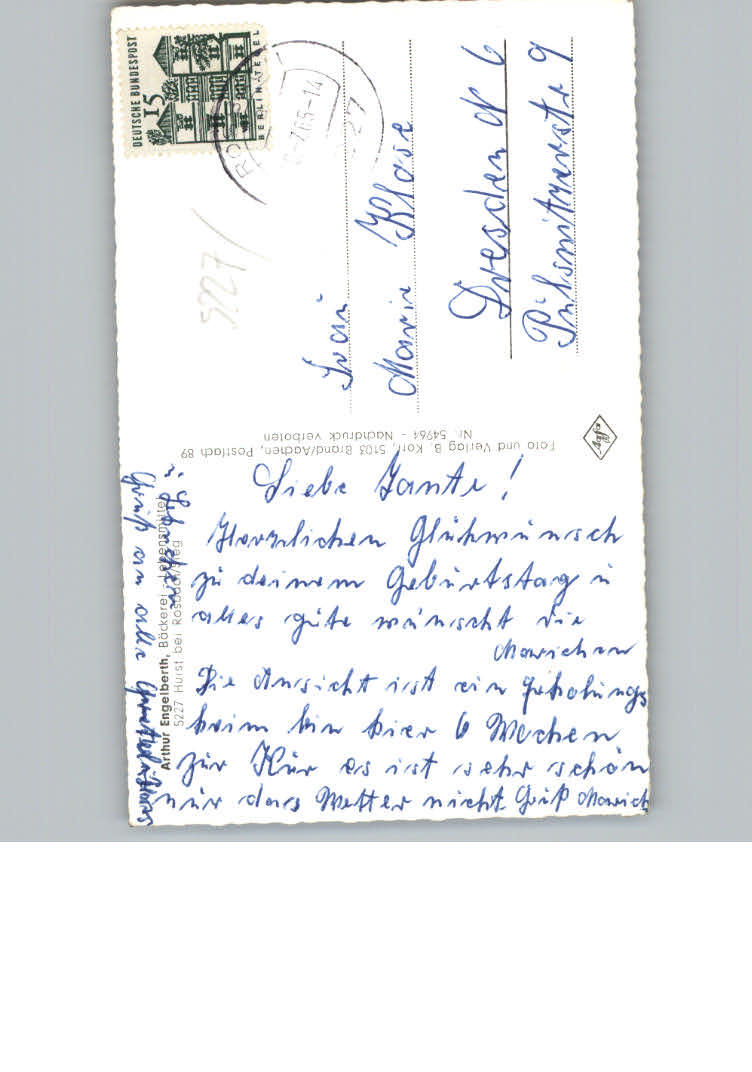 DEUTSCHE BUNDESPOST
15
BERLIN-TEGEL
65-14
5227
5227
Frau
Marie Klose
Dresden N 6
Pulsnitzerstr 9
Agfa
Foto und Verlag B. Korr, 5103 Brand/Aachen, Postfach 89
Nr. 54964 - Nachdruck verboten
Arthur Engelberth, Bäckerei - Lebensmittel
5227 Hurst bei Rosbach/Sieg
Liebe Tante!
Herzlichen Glühwunsch
zu deinem Geburtstag u
alles gute wünscht die
Mariechen
Die Ansicht ist ein Erholungs
heim bin hier 6 Wochen
zur Kur es ist sehr schön
nur das Wetter nicht Gruß Mariech
Gruß an alle